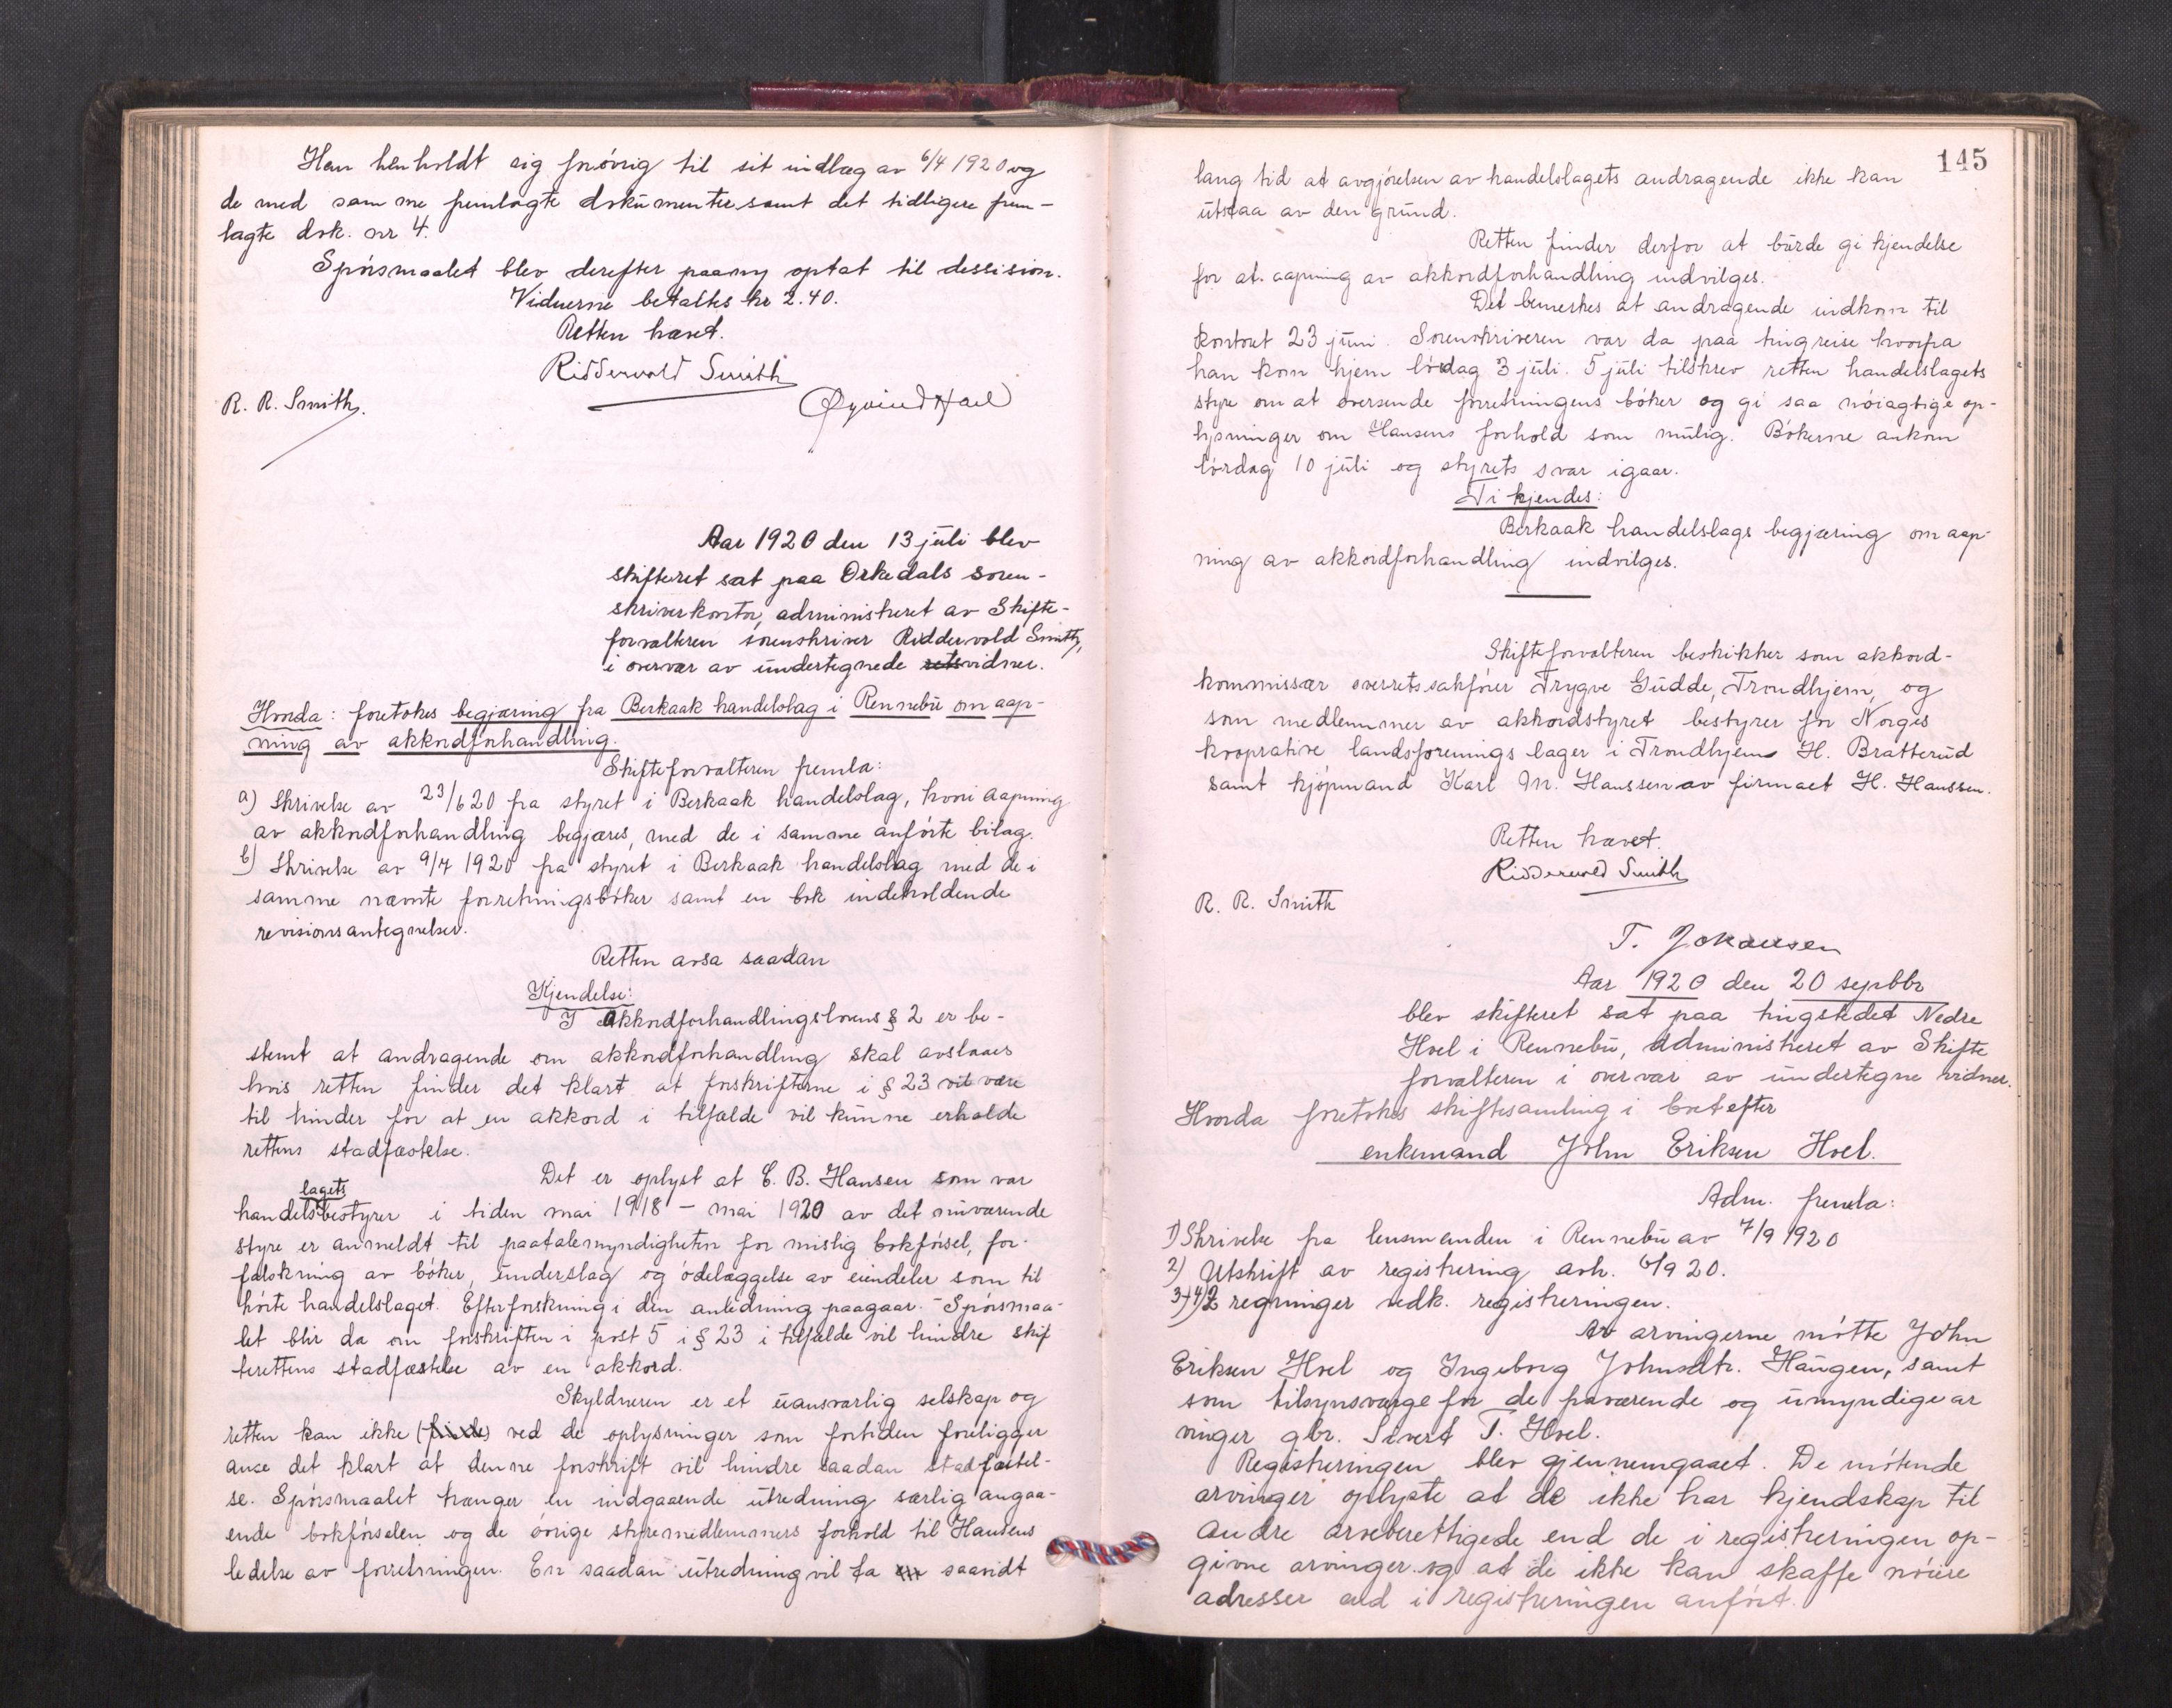 Han henholdt sig forövrig til sit indlæg av 6/4 1920 og
de med samme fremlagte dokumenter samt det tidligere frem-
lagte dok. nr 4.
Spörsmaalet blev derefter paany optat til dessision.
Vidnerne betaltes kr 2.40.
Retten hævet.
Riddervold Smith
R. R. Smith.
Øyvind Hoel
Aar 1920 den 13 juli blev
skifteret sat paa Orkedals soren-
skriverkontor, administreret av Skifte-
forvalteren sorenskriver Riddervold Smith,
i overvær av undertegnede retsvidner.
Hvorda: foretokes begjæring fra Berkaak handelslag i Rennebu om aap-
ning av akkordforhandling.
Skifteforvalteren fremla:
a) Skrivelse av 23/6 20 fra styret i Berkaak handelslag, hvori aapning
av akkordforhandling begjæres, med de i samme anförte bilag.
b) Skrivelse av 9/7 1920 fra styret i Berkaak handelslag med de i
samme nævnte forretningsböker samt en bok indeholdende
revisionsantegnelser.
Retten avsa saadan
Kjendelse:
I Akkordforhandlingslovens § 2 er be-
stemt at andragende om akkordforhandling skal avslaaes
hvis retten finder det klart at forskrifterne i § 23 vil være
til hinder for at en akkord i tilfælde vil kunne erholde
rettens stadfæstelse.
Det er oplyst at C. B. Hansen som var
lagets
handelsbestyrer i tiden mai 1918 - mai 1920 av det nuværende
styre er anmeldt til paatalemyndigheten for mislig bokförsel, for-
falskning av böker, underslag og ödelæggelse av eiendeler som til
hörte handelslaget. Efterforskning i den anledning paagaar. - Spörsmaa-
let blir da om forskriften i post 5 i § 23 i tilfælde vil hindre skif
terettens stadfæstelse av en akkord.
Skyldneren er et uansvarlig selskap og
retten kan ikke (finde) ved de oplysninger som fortiden foreligger
anse det klart at denne forskrift vil hindre saadan stadfæstel-
se. Spörsmaalet trænger en indgaaende utredning særlig angaa-
ende bokförselen og de övrige styremedlemmers forhold til Hansens
ledelse av forretningen. En saadan utredning vil ta saavidt
145
lang tid at avgjörelsen av handelslagets andragende ikke kan
utstaa av den grund.
Retten finder derfor at burde gi kjendelse
for at aapning av akkordforhandling indvilges.
Det bemerkes at andragende indkom til
kontoret 23 juni. Sorenskriveren var da paa tingreise hvorfra
han kom hjem lördag 3 juli. 5 juli tilskrev retten handelslagets
styre om at oversende forretningens böker og gi saa nöiagtige op-
lysninger om Hansens forhold som mulig. Bökerne ankom
lördag 10 juli og styrets svar igaar.
Ti kjendes:
Berkaak handelslags begjæring om aap-
ning av akkordforhandling indvilges.
Skifteforvalteren beskikker som akkord-
kommissær overretssakförer Trygve Gudde, Trondhjem, og
som medlemmer av akkordstyret bestyrer for Norges
kooprative landsforenings lager i Trondhjem H. Bratterud
samt kjöpmand Karl M. Hanssen av firmaet H. Hanssen.
Retten hævet.
Riddervold Smith
R. R. Smith
T. Johansen
Aar 1920 den 20 septbr
blev skifteret sat paa tingstedet Nedre
Hoel i Rennebu, administreret av Skifte
forvalteren i overvær av undertegne vidner.
Hvorda foretokes skiftesamling i boet efter
enkemand John Eriksen Hoel.
Adm. fremla:
1) Skrivelse fra lensmanden i Rennebu av 7/9 1920
2) Utskrift av registrering avh. 6/9 20.
3)+4) 2 regninger vedk. registreringen.
Av arvingerne mötte John
Eriksen Hoel og Ingeborg Johnsdtr. Haugen, samt
som tilsynsværge for de fraværende og umyndige ar
vinger gbr. Sivert T. Hoel.
Registreringen blev gjennemgaaet. De mötende
arvinger oplyste at de ikke har kjendskap til
andre arveberettigede end de i registreringen op-
givne arvinger og at de ikke kan skaffe nöiere
adresser end i registreringen anfört.